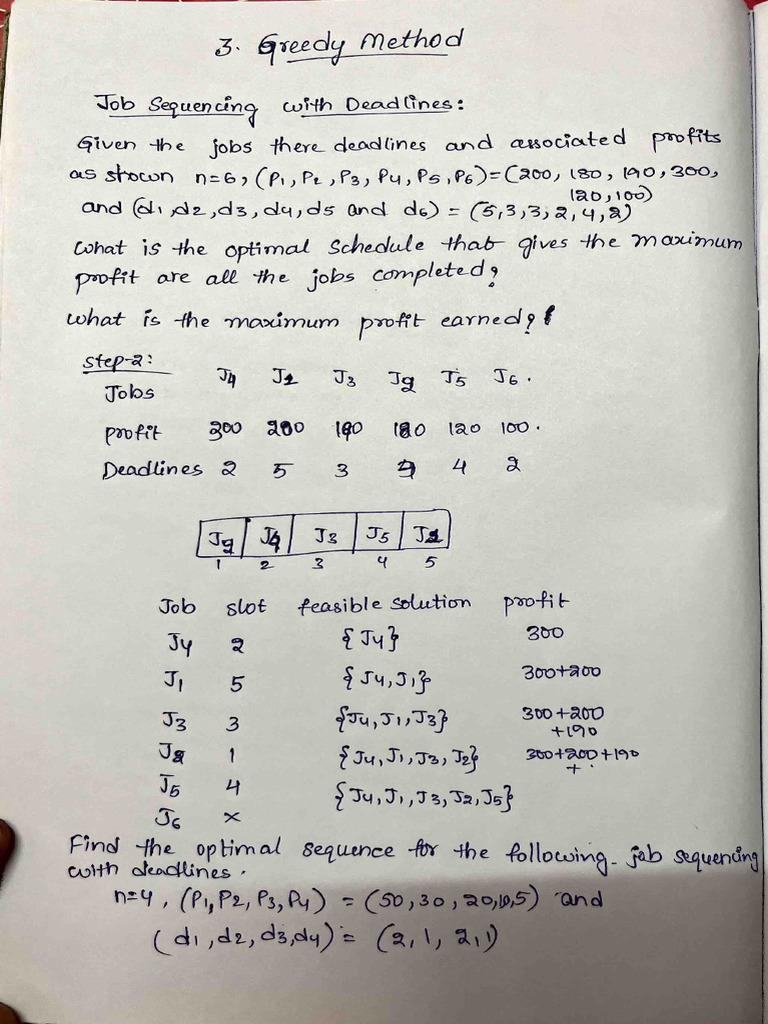 3. Greedy Method
Job Sequencing with Deadlines:
Given the jobs there deadlines and associated profits
as shown n=6, (P1, P2, P3, P4, P5, P6)=(200, 180, 190, 300,
120,100)
and (d1,d2,d3,d4,d5 and d6) = (5,3,3,2,4,2)
what is the optimal Schedule that gives the maximum
profit are all the jobs completed?
what is the maximum profit earned?
Step-2:
Jobs J4 J1 J3 J2 J5 J6.
profit 300 200 190 180 120 100.
Deadlines 2 5 3 4 2
J2 J4 J3 J5 J1
1 2 3 4 5
Job slot feasible solution profit
J4 2 {J4} 300
J1 5 {J4,J1} 300+200
J3 3 {J4,J1,J3} 300+200
+190
J2 1 {J4,J1,J3,J2} 300+200+190
+.
J5 4 {J4,J1,J3,J2,J5}
J6 x
Find the optimal sequence for the following. job sequencing
with deadlines.
n=4, (P1,P2,P3,P4) = (50,30,20,10,5) and
(d1,d2,d3,d4) = (2,1,2,1)